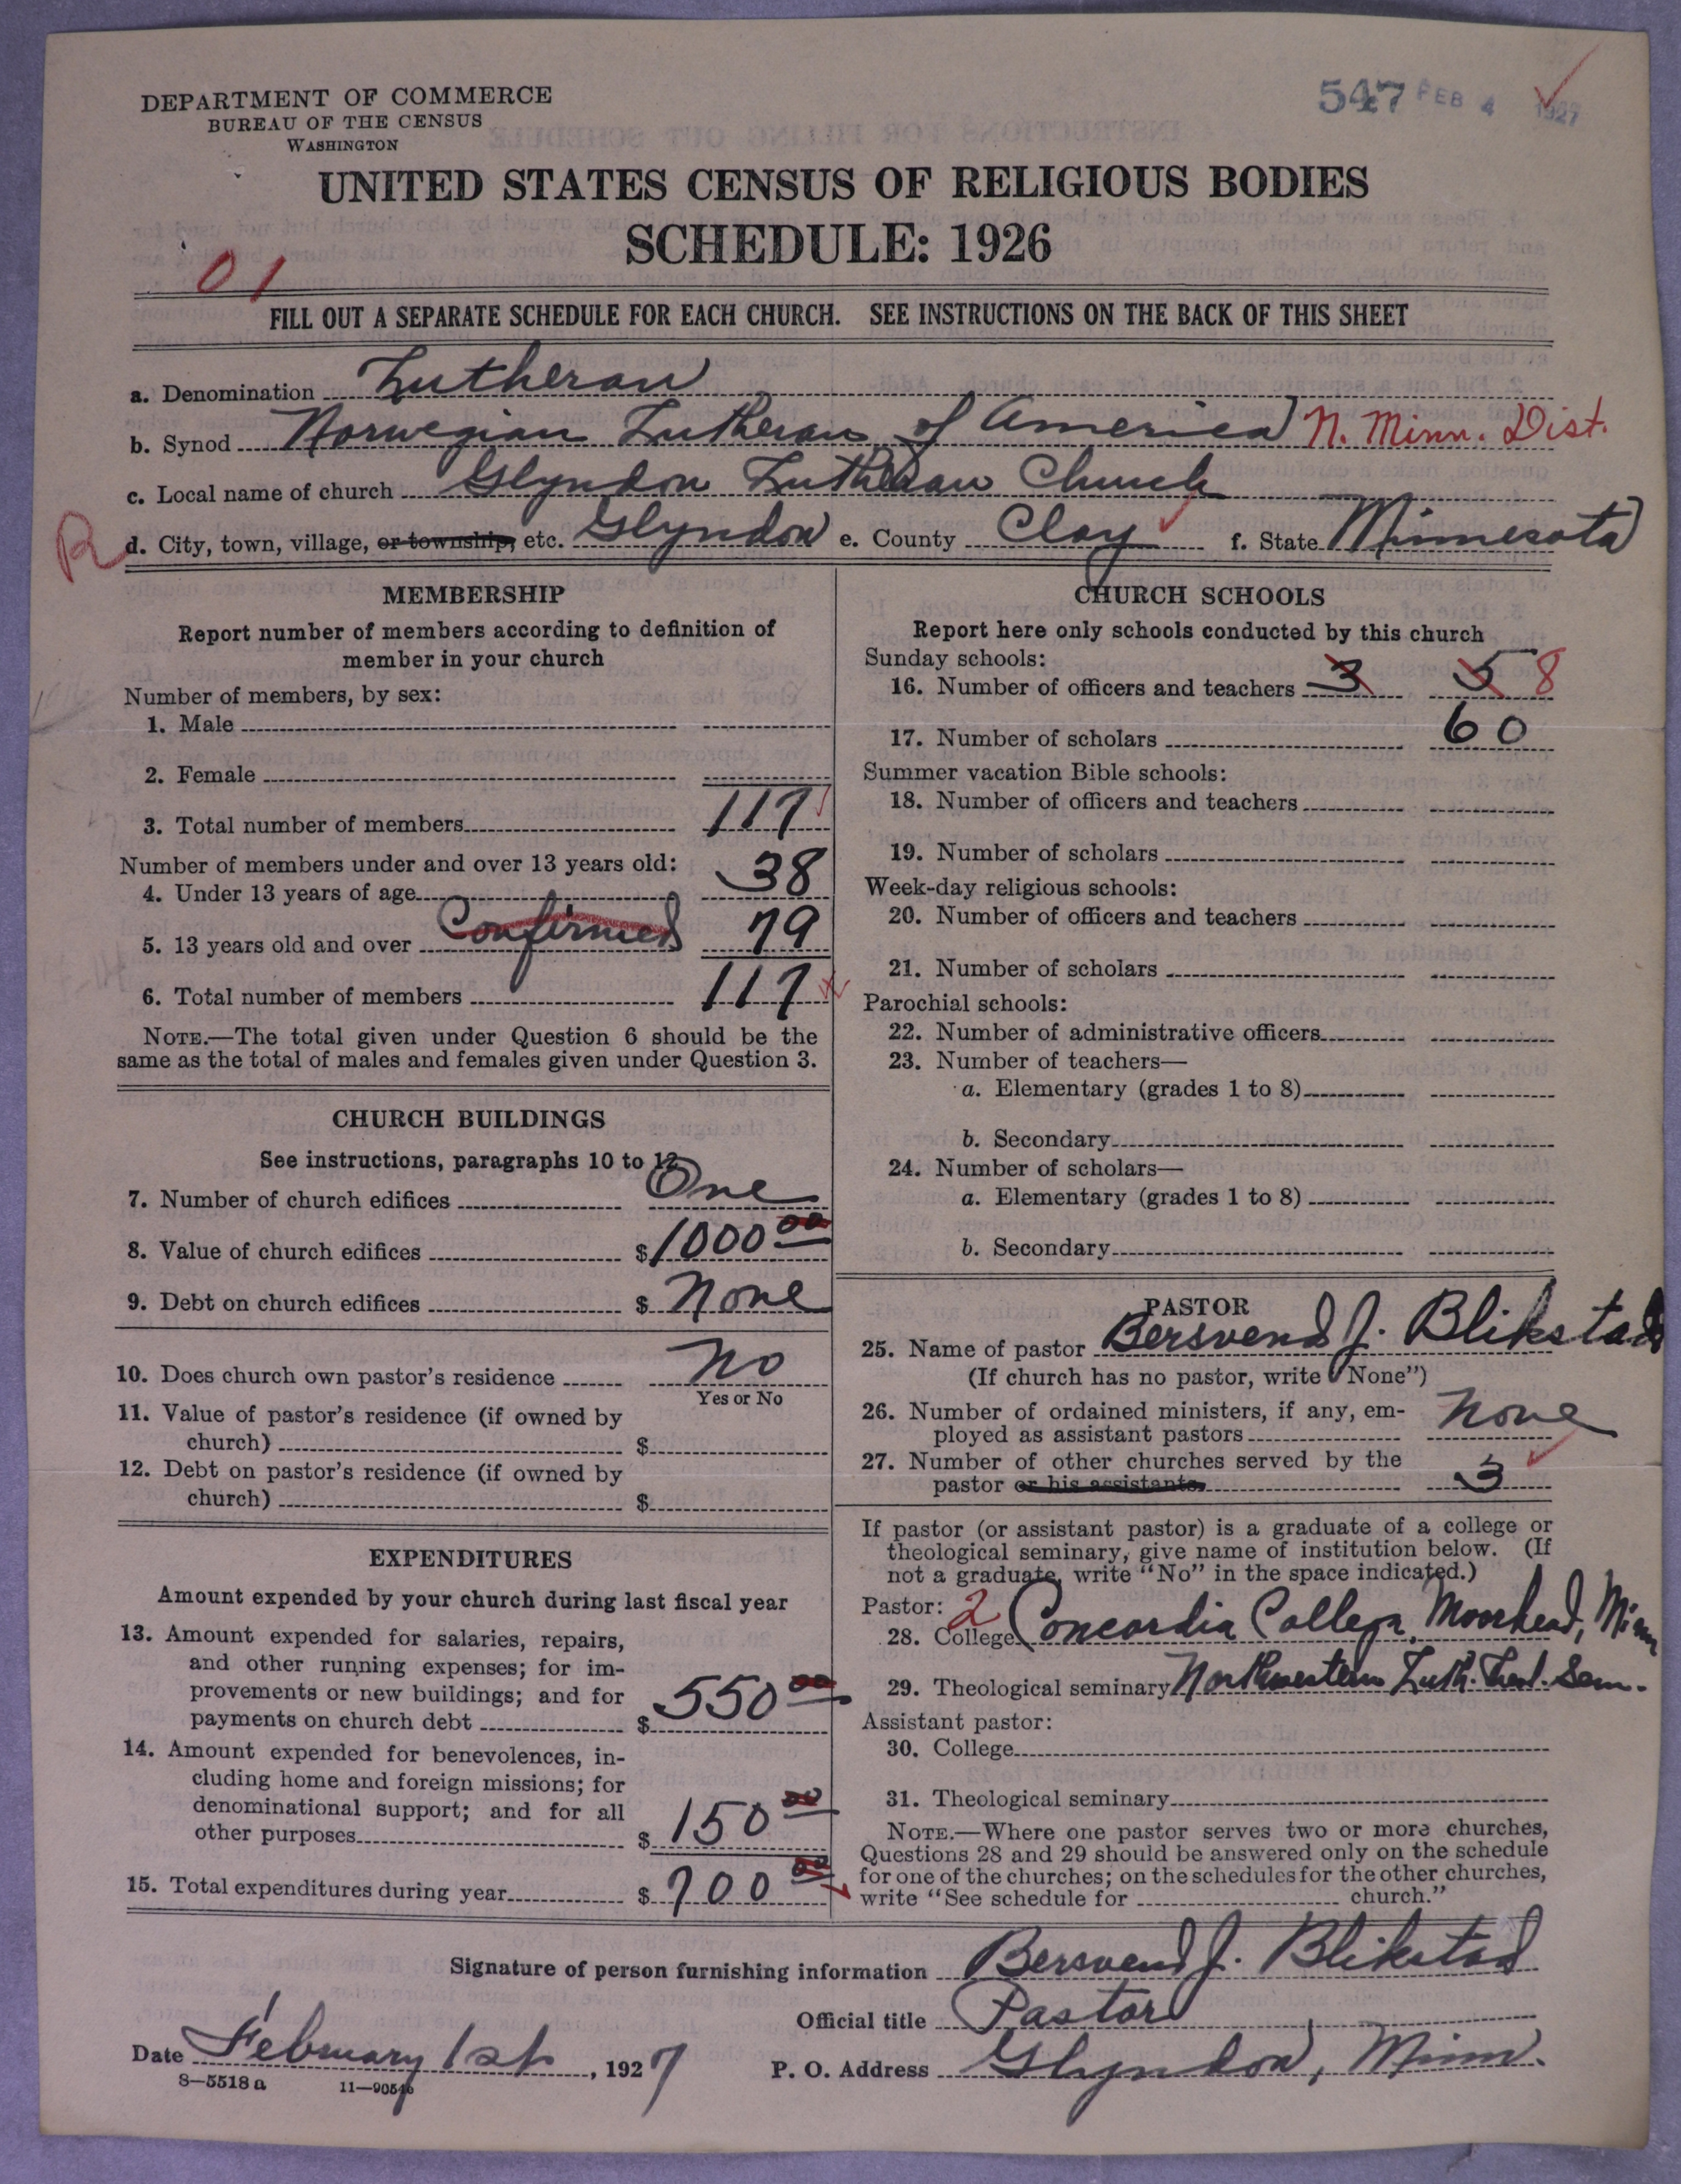 DEPARTMENT OF COMMERCE
BUREAU OF THE CENSUS
WASHINGTON
547 FEB 4 1927
UNITED STATES CENSUS OF RELIGIOUS BODIES
SCHEDULE: 1926
01
FILL OUT A SEPARATE SCHEDULE FOR EACH CHURCH. SEE INSTRUCTIONS ON THE BACK OF THIS SHEET
a. Denomination Lutheran
b. Synod Norwegian Lutheran of America N. Minn. Dist.
c. Local name of church Glyndon Lutheran Church
R d. City, town, village, or township, etc. Glyndon e. County Clay f. State Minnesota
MEMBERSHIP
Report number of members according to definition of
member in your church
Number of members, by sex:
1. Male
2. Female
3. Total number of members 117
Number of members under and over 13 years old:
4. Under 13 years of age 38
5. 13 years old and over Confirmed 79
6. Total number of members 117
NOTE.—The total given under Question 6 should be the
same as the total of males and females given under Question 3.
CHURCH BUILDINGS
See instructions, paragraphs 10 to 12
7. Number of church edifices One
8. Value of church edifices $1000 00
9. Debt on church edifices $ None
10. Does church own pastor's residence No
Yes or No
11. Value of pastor's residence (if owned by
church) $
12. Debt on pastor's residence (if owned by
church) $
EXPENDITURES
Amount expended by your church during last fiscal year
13. Amount expended for salaries, repairs,
and other running expenses; for im-
provements or new buildings; and for
payments on church debt $ 550 00
14. Amount expended for benevolences, in-
cluding home and foreign missions; for
denominational support; and for all
other purposes $ 150 00
15. Total expenditures during year $ 700 00
CHURCH SCHOOLS
Report here only schools conducted by this church
Sunday schools:
16. Number of officers and teachers 3 5 8
17. Number of scholars 60
Summer vacation Bible schools:
18. Number of officers and teachers
19. Number of scholars
Week-day religious schools:
20. Number of officers and teachers
21. Number of scholars
Parochial schools:
22. Number of administrative officers
23. Number of teachers—
a. Elementary (grades 1 to 8)
b. Secondary
24. Number of scholars—
a. Elementary (grades 1 to 8)
b. Secondary
PASTOR
25. Name of pastor Bersvend J. Blikstad
(If church has no pastor, write "None")
26. Number of ordained ministers, if any, em-
ployed as assistant pastors None
27. Number of other churches served by the
pastor or his assistants 3
If pastor (or assistant pastor) is a graduate of a college or
theological seminary, give name of institution below. (If
not a graduate, write "No" in the space indicated.)
Pastor: 2
28. College Concordia College, Moorhead, Minn
29. Theological seminary Northwestern Luth. Theol. Sem.
Assistant pastor:
30. College
31. Theological seminary
NOTE.—Where one pastor serves two or more churches,
Questions 28 and 29 should be answered only on the schedule
for one of the churches; on the schedules for the other churches,
write "See schedule for church."
Signature of person furnishing information Bersvend J. Blikstad
Official title Pastor
Date February 1st, 1927 P. O. Address Glyndon, Minn.
8—5518 a 11—9054